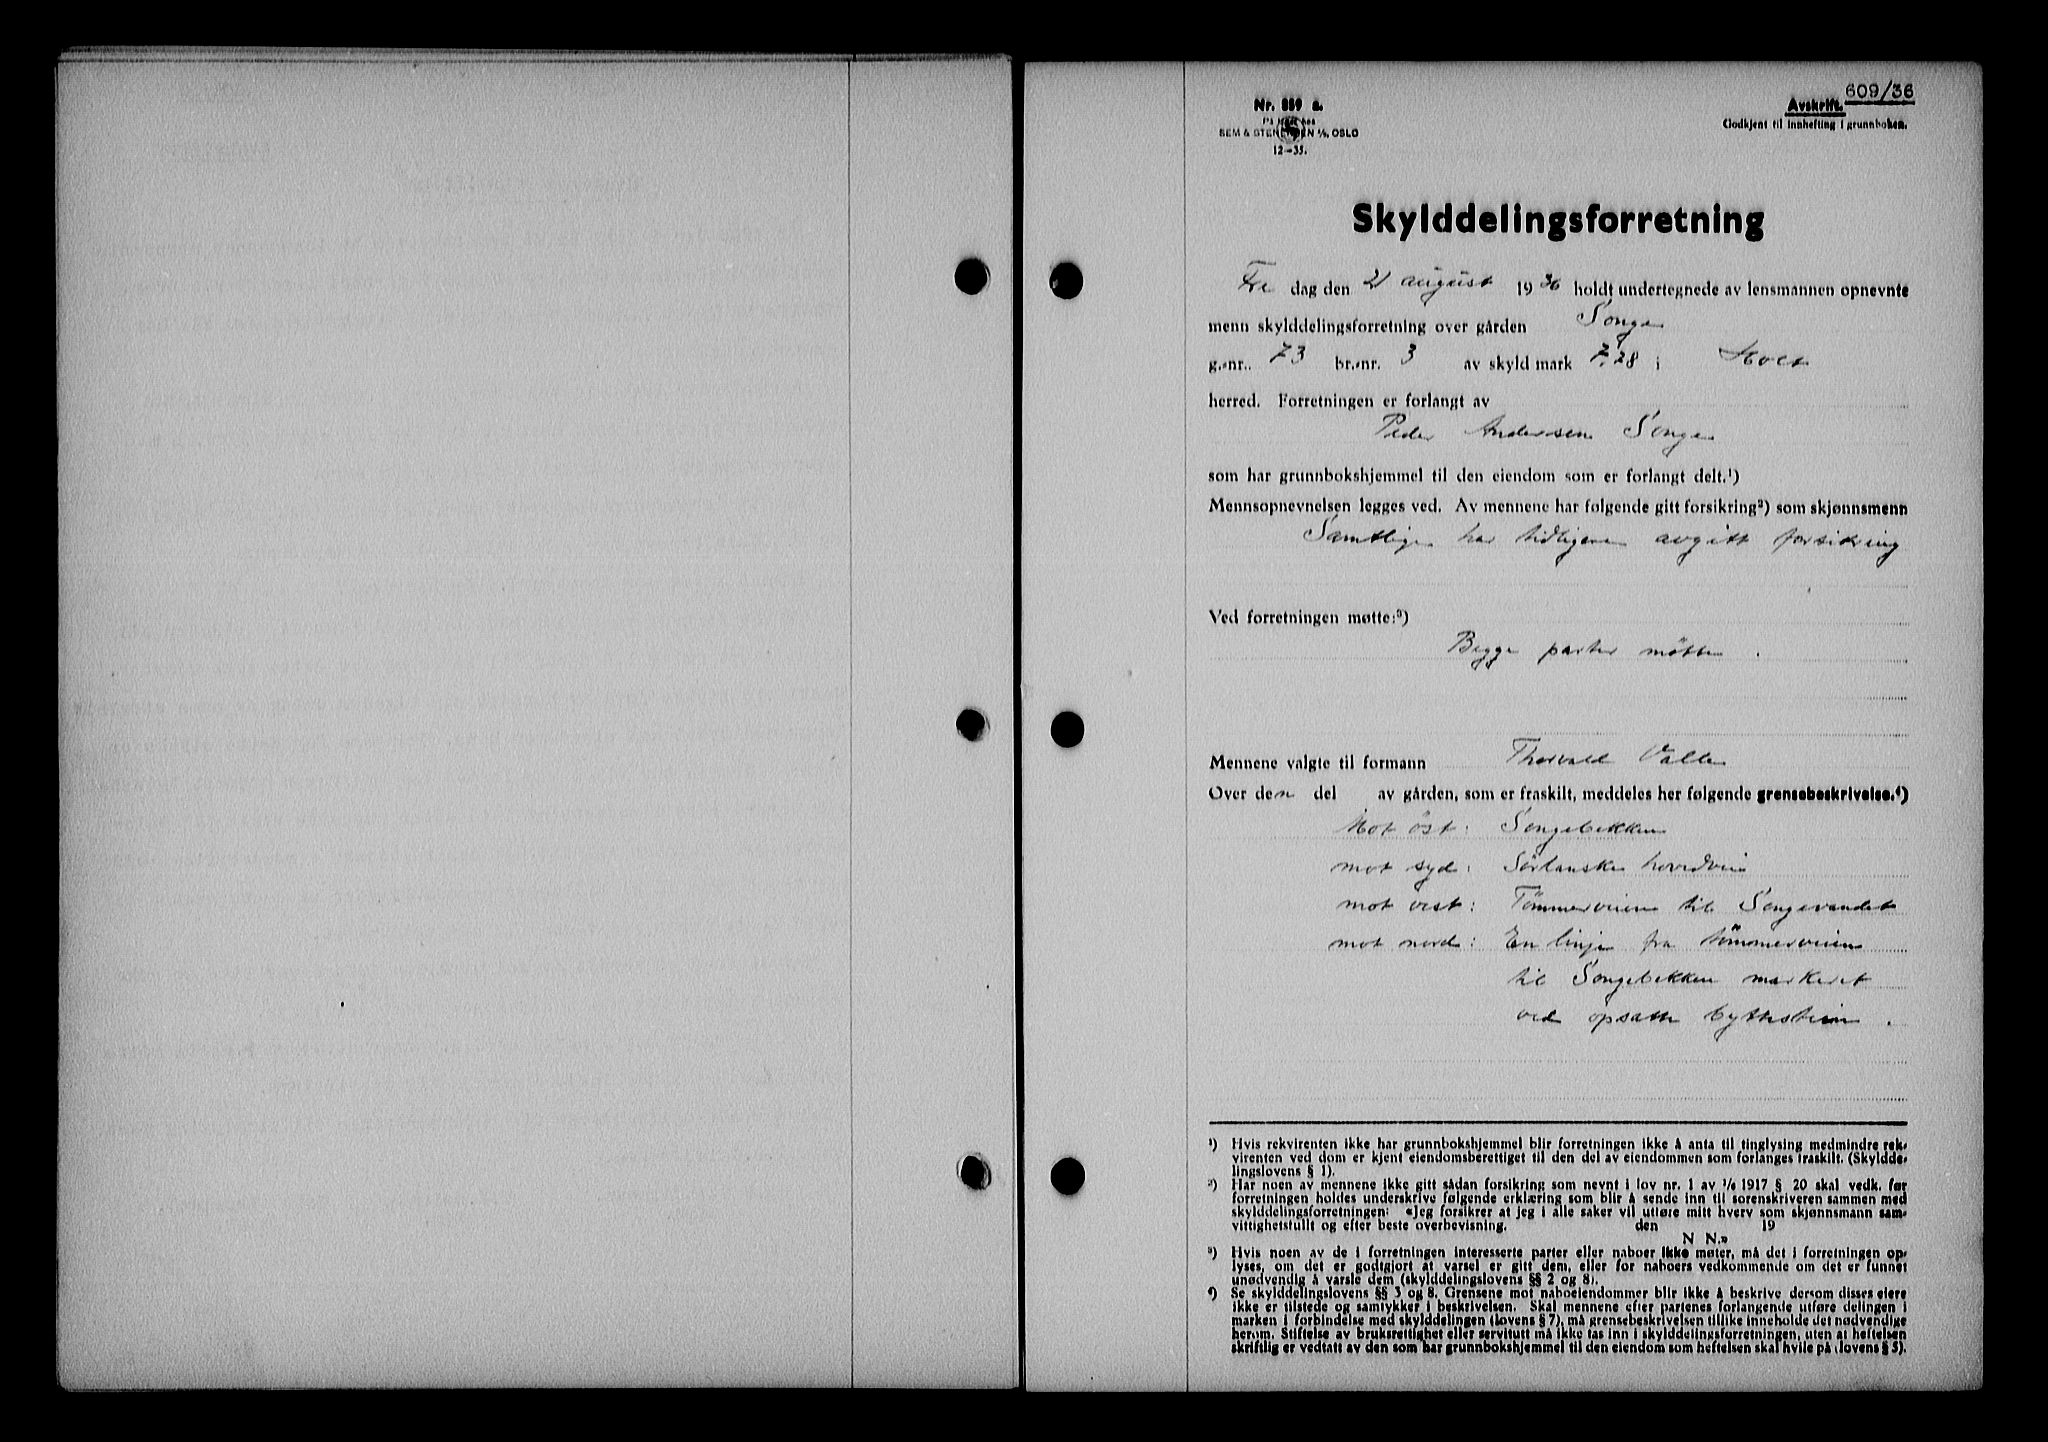 609/36
Nr. 889 a.
Avskrift.
På lager hos
Godkjent til innhefting i grunnboken.
SEM & STENERSEN A/S, OSLO
12-35.
Skylddelingsforretning
Fre dag den 21 august 1936 holdt undertegnede av lensmannen opnevnte
menn skylddelingsforretning over gården Songe
g.-nr. 73 br.-nr. 3 av skyld mark 7,28 i Holt
herred. Forretningen er forlangt av
Peder Andersen Songe
som har grunnbokshjemmel til den eiendom som er forlangt delt.¹)
Mennsopnevnelsen legges ved. Av mennene har følgende gitt forsikring²) som skjønnsmenn
Samtlige har tidligere avgitt forsikring
Ved forretningen møtte:³)
Begge parter møtte.
Mennene valgte til formann Thorvald Valle
Over den del av gården, som er fraskilt, meddeles her følgende grensebeskrivelse.⁴)
Mot öst: Songebekken
mot syd: Sörlanske hovedvei
mot vest: Tömmerveien til Songevandet
mot nord: En linje fra tömmerveien
til Songebekken markeret
ved opsatte byttestein.
¹) Hvis rekvirenten ikke har grunnbokshjemmel blir forretningen ikke å anta til tinglysing medmindre rek-
virenten ved dom er kjent eiendomsberettiget til den del av eiendommen som forlanges fraskilt. (Skyldde-
lingslovens § 1).
²) Har noen av mennene ikke gitt sådan forsikring som nevnt i lov nr. 1 av 1/6 1917 § 20 skal vedk. før
forretningen holdes underskrive følgende erklæring som blir å sende inn til sorenskriveren sammen med
skylddelingsforretningen: «Jeg forsikrer at jeg i alle saker vil utføre mitt hverv som skjønnsmann sam-
vittighetsfullt og efter beste overbevisning. den 19
N N.»
³) Hvis noen av de i forretningen interesserte parter eller naboer ikke møter, må det i forretningen op-
lyses, om det er godtgjort at varsel er gitt dem, eller for naboers vedkommende om det er funnet
unødvendig å varsle dem (skylddelingslovens §§ 2 og 8).
⁴) Se skylddelingslovens §§ 3 og 8. Grensene mot naboeiendommer blir ikke å beskrive dersom disses eiere
ikke er tilstede og samtykker i beskrivelsen. Skal mennene efter partenes forlangende utføre delingen i
marken i forbindelse med skylddelingen (lovens § 7), må grensebeskrivelsen tillike inneholde det nødvendige
herom. Stiftelse av bruksrettighet eller servitutt må ikke tas inn i skylddelingsforretningen, uten at heftelsen
skriftlig er vedtatt av den som har grunnbokshjemmel til den eiendom som heftelsen skal hvile på (lovens § 5).